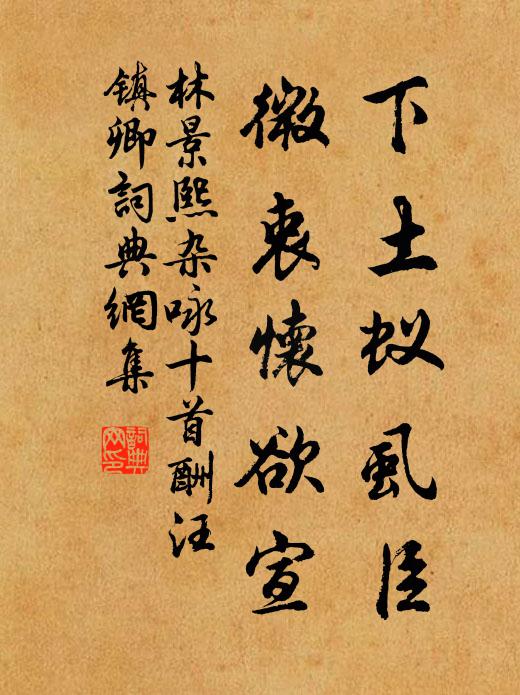 下土蚁虱臣
微衷懐欲宣
林景熙杂咏十首酬汪
镇卿詞典網集
詞典
网印